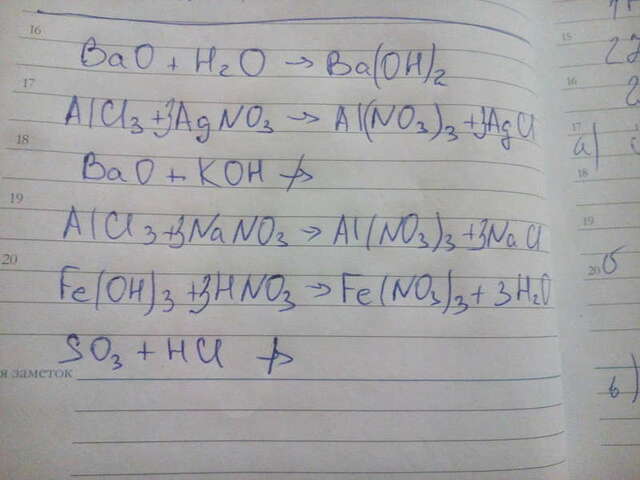 16
BaO + H₂O → Ba(OH)₂
17
AlCl₃ + 3AgNO₃ → Al(NO₃)₃ + 3AgCl
18
BaO + KOH ↛
19
AlCl₃ + 3NaNO₃ → Al(NO₃)₃ + 3NaCl
20
Fe(OH)₃ + 3HNO₃ → Fe(NO₃)₃ + 3H₂O
SO₃ + HCl ↛
я заметок
15
16
17
а)
18
19
20
б
в)